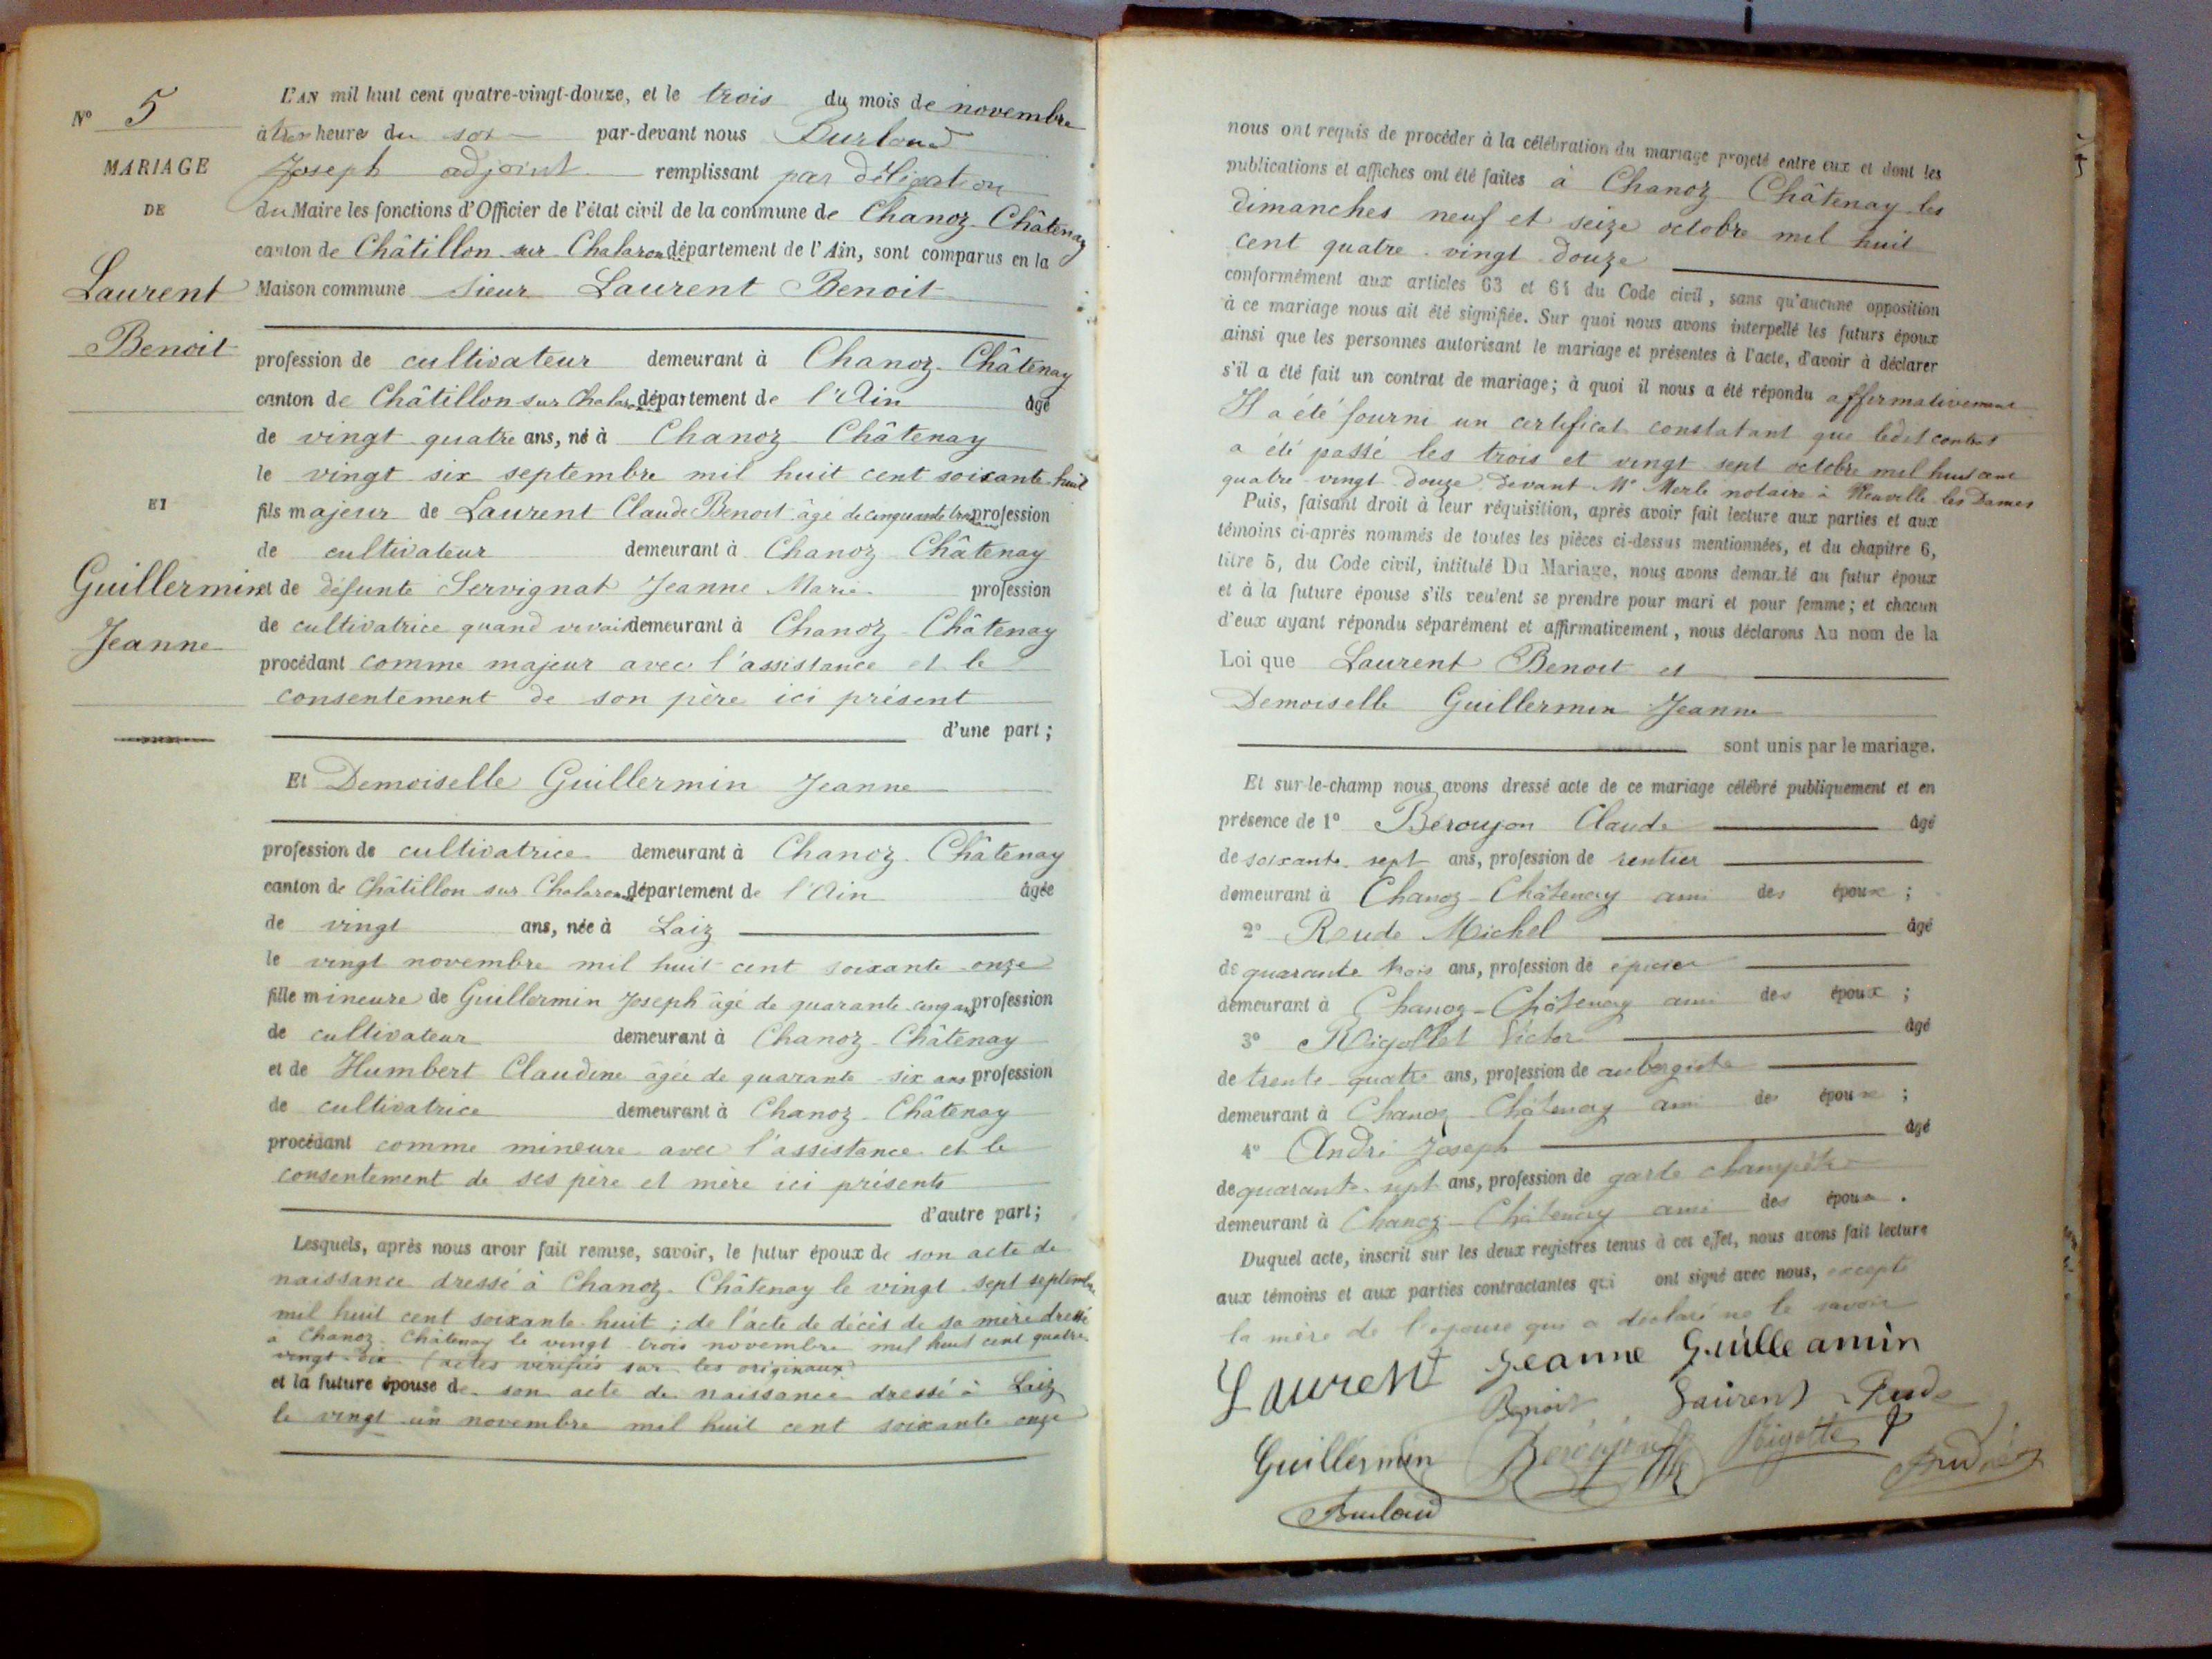 N° 5
MARIAGE
DE
Laurent
Benoit
ET
Guillermin
Jeanne
L'AN mil huit cent quatre-vingt-douze, et le trois du mois de novembre
à trois heures du soir par-devant nous Burloud
Joseph adjoint remplissant par délégation
du Maire les fonctions d'Officier de l'état civil de la commune de Chanoz-Châtenay
canton de Châtillon sur Chalaronne département de l'Ain, sont comparus en la
Maison commune Sieur Laurent Benoit
profession de cultivateur demeurant à Chanoz-Châtenay
canton de Châtillon sur Chalar. département de l'Ain âgé
de vingt quatre ans, né à Chanoz Châtenay
le vingt six septembre mil huit cent soixante-huit
fils majeur de Laurent Claude Benoit âgé de cinquante trois ans profession
de cultivateur demeurant à Chanoz Châtenay
et de défunte Servignat Jeanne Marie profession
de cultivatrice quand vivait demeurant à Chanoz-Châtenay
procédant comme majeur avec l'assistance et le
consentement de son père ici présent
d'une part;
Et Demoiselle Guillermin Jeanne
profession de cultivatrice demeurant à Chanoz-Châtenay
canton de Châtillon sur Chalaronne département de l'Ain âgée
de vingt ans, née à Laiz
le vingt novembre mil huit cent soixante-onze
fille mineure de Guillermin Joseph âgé de quarante-cinq ans profession
de cultivateur demeurant à Chanoz-Châtenay
et de Humbert Claudine âgée de quarante-six ans profession
de cultivatrice demeurant à Chanoz-Châtenay
procédant comme mineure avec l'assistance et le
consentement de ses père et mère ici présents
d'autre part;
Lesquels, après nous avoir fait remise, savoir, le futur époux de son acte de
naissance dressé à Chanoz-Châtenay le vingt-sept septembre
mil huit cent soixante-huit; de l'acte de décès de sa mère dressé
à Chanoz-Châtenay le vingt-trois novembre mil huit cent quatre-
vingt-dix (actes vérifiés sur les originaux)
et la future épouse de son acte de naissance dressé à Laiz
le vingt-un novembre mil huit cent soixante-onze
nous ont requis de procéder à la célébration du mariage projeté entre eux et dont les
publications et affiches ont été faites à Chanoz Châtenay les
dimanches neuf et seize octobre mil huit
cent quatre-vingt-douze
conformément aux articles 63 et 64 du Code civil, sans qu'aucune opposition
à ce mariage nous ait été signifiée. Sur quoi nous avons interpellé les futurs époux
ainsi que les personnes autorisant le mariage et présentes à l'acte, d'avoir à déclarer
s'il a été fait un contrat de mariage; à quoi il nous a été répondu affirmativement
Il a été fourni un certificat constatant que ledit contrat
a été passé les trois et vingt sept octobre mil huit cent
quatre-vingt-douze devant Me Merle notaire à Neuville les Dames
Puis, faisant droit à leur réquisition, après avoir fait lecture aux parties et aux
témoins ci-après nommés de toutes les pièces ci-dessus mentionnées, et du chapitre 6,
titre 5, du Code civil, intitulé Du Mariage, nous avons demandé au futur époux
et à la future épouse s'ils veulent se prendre pour mari et pour femme; et chacun
d'eux ayant répondu séparément et affirmativement, nous déclarons Au nom de la
Loi que Laurent Benoit et
Demoiselle Guillermin Jeanne
sont unis par le mariage.
Et sur-le-champ nous avons dressé acte de ce mariage célébré publiquement et en
présence de 1° Béroujon Claude âgé
de soixante-sept ans, profession de rentier
demeurant à Chanoz-Châtenay ami des époux;
2° Reude Michel âgé
de quarante trois ans, profession de épicier
demeurant à Chanoz-Châtenay ami des époux;
3° Rigollet Victor âgé
de trente-quatre ans, profession de aubergiste
demeurant à Chanoz-Châtenay ami des époux;
4° André Joseph âgé
de quarante-sept ans, profession de garde champêtre
demeurant à Chanoz-Châtenay ami des époux.
Duquel acte, inscrit sur les deux registres tenus à cet effet, nous avons fait lecture
aux témoins et aux parties contractantes qui ont signé avec nous, excepté
la mère de l'épouse qui a déclaré ne le savoir
Laurent Jeanne Guilleamin
Benoit Laurent Reude
Guillermin Béroujon Rigollet André
Burloud